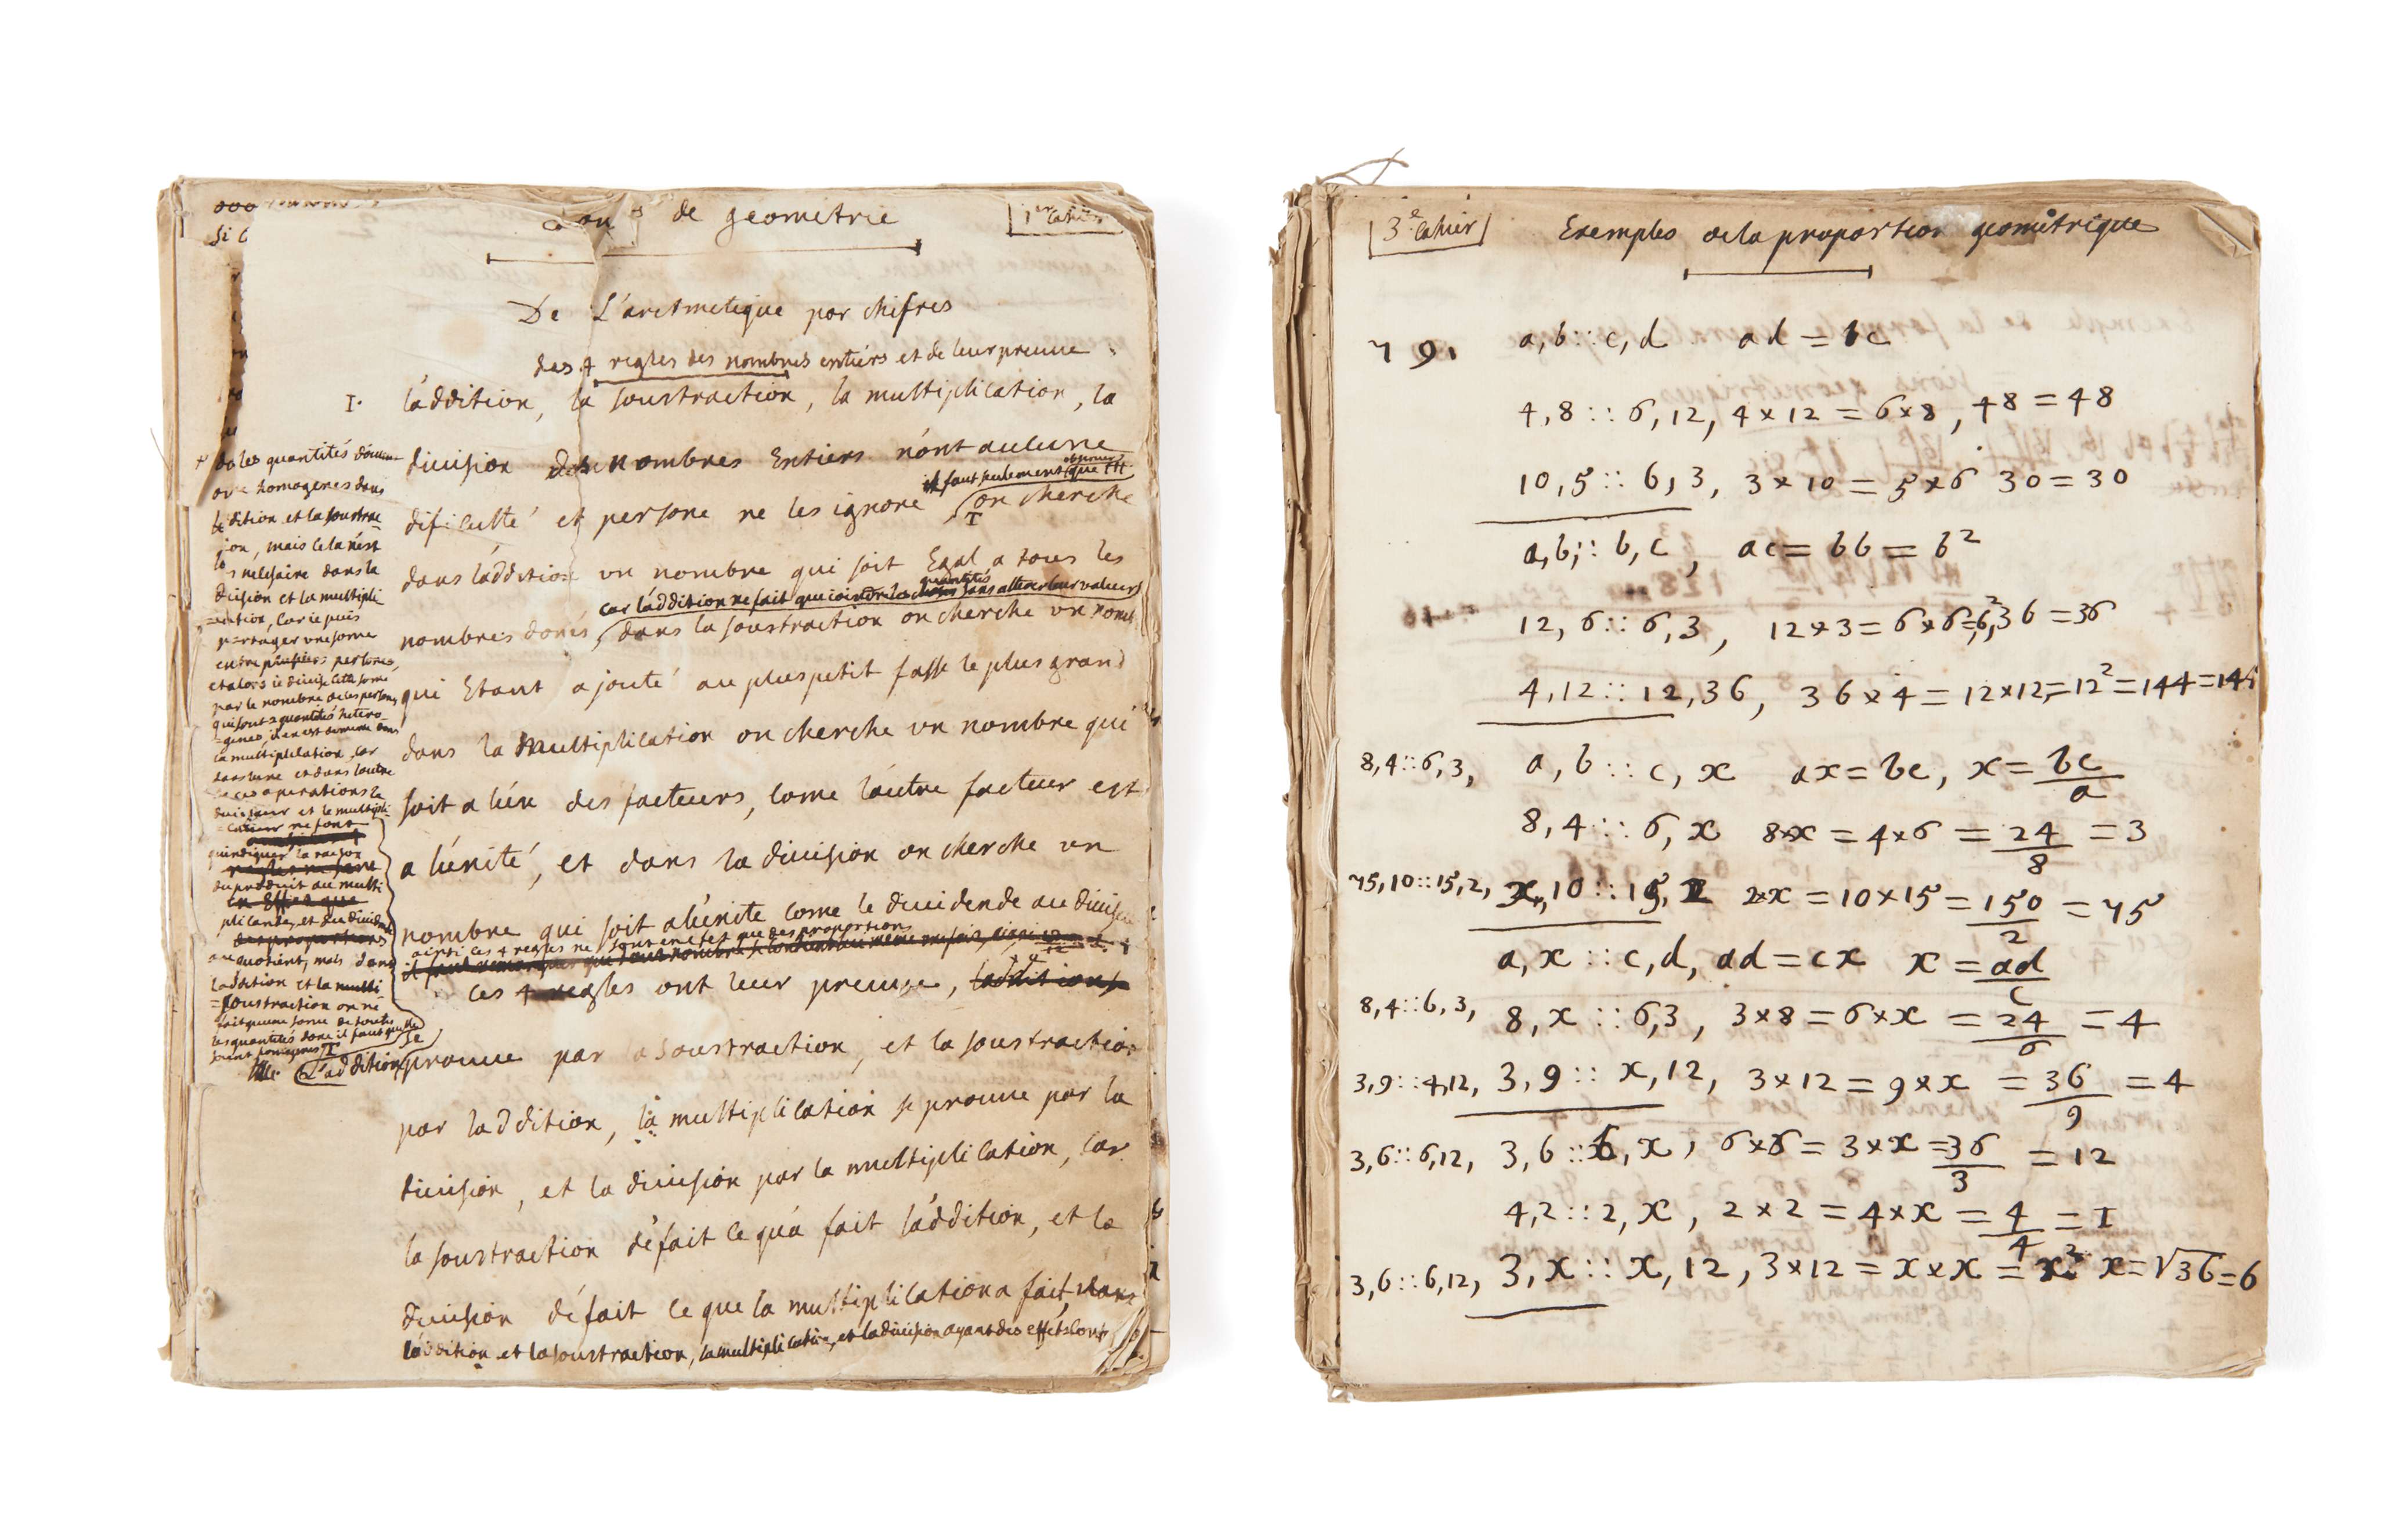 de geometrie
1er Cahier
De L'aretmetique par chifres
des 4 regles des nombres entiérs et de leur preuue
I. l'addition, la soustraction, la multiplication, la
diuision des nombres Entiers n'ont aucune
il faut seulement obseruer que
dificulté et persone ne les ignore on cherche
dans l'addition un nombre qui soit Egal a tous les
car l'addition ne fait que ioindre les quantités sans alterer leur valeur
nombres donés, dans la soustraction on cherche un nomb
qui Etant ajouté au plus petit fasse le plus grand
dans la Multiplication on cherche un nombre qui
soit a l'un des facteurs, come l'autre facteur est
a l'unité, et dans la diuision on cherche un
nombre qui soit a l'unite come le diuidende au diuiseur
ainsi ces 4 regles ne sont en efet que des proportions
ces 4 regles ont leur preuue, l'addition
L'addition se
prouue par la soustraction, et la soustraction
par l'addition, la multiplication se prouue par la
diuision, et la diuision par la multiplication, car
la soustraction défait ce qu'a fait l'addition, et la
diuision défait ce que la multiplication a fait, dans
l'addition et la soustraction, la multiplication, et la diuision ayant des effets
de les quantités doiuent
etre homogenes dans
l'adition et la soustrac
ion, mais cela n'est
pas necessaire dans la
diuision et la multipli
=cation, car ie puis
partager une some
entre plusieurs persones,
et alors ie diuise cette some
par le nombre de ces persones
qui sont 2 quantités hetero-
=genes, il en est de meme dans
la multiplication, car
dans l'une et dans l'autre
de ces operations le
diuiseur et le multipli-
=cateur ne font
qu'indiquer la raison
du produit au multi
plicande, et du diuidende
au quotient, mais dans
l'addition et la
=soustraction on ne
fait qu'une some de toutes
les quantités donc il faut qu'elles
soient homogenes
3e Cahier
Exemples de la proportion géométrique
79. a,b::c,d ad=bc
4,8::6,12, 4×12=6×8, 48=48
10,5::6,3, 3×10=5×6 30=30
a,b::b,c, ac=bb=b²
12,6::6,3, 12×3=6×6=6², 36=36
4,12::12,36, 36×4=12×12=12²=144=144
8,4::6,3, a,b::c,x ax=bc, x=bc/a
8,4::6,x 8×x=4×6=24/8=3
75,10::15,2, x,10::15,2 2×x=10×15=150/2=75
a,x::c,d, ad=cx x=ad/c
8,4::6,3, 8,x::6,3, 3×8=6×x=24/6=4
3,9::4,12, 3,9::x,12, 3×12=9×x=36/9=4
3,6::6,12, 3,6::6,x, 6×6=3×x=36/3=12
4,2::2,x, 2×2=4×x=4/4=I
3,6::6,12, 3,x::x,12, 3×12=x×x=x² x=√36=6